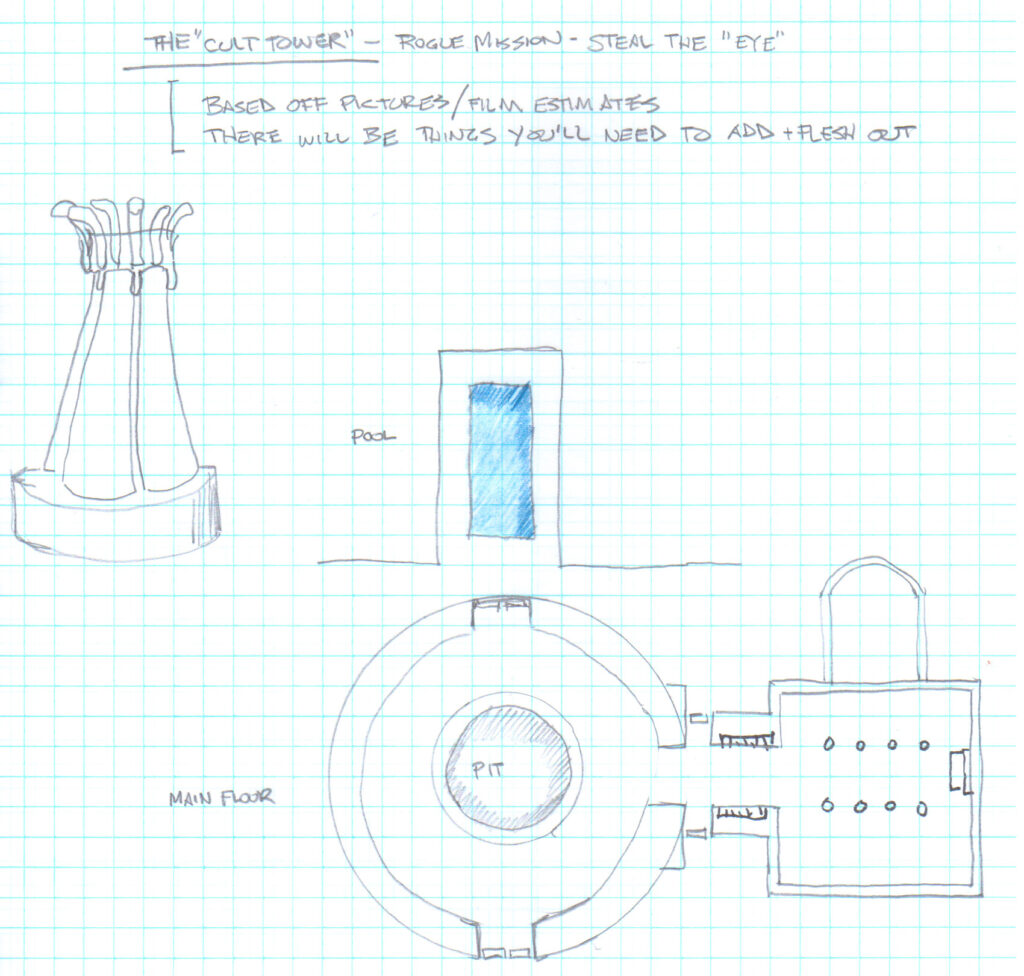 THE "CULT TOWER" - ROGUE MISSION - STEAL THE "EYE"
BASED OFF PICTURES/FILM ESTIMATES
THERE WILL BE THINGS YOU'LL NEED TO ADD + FLESH OUT
POOL
PIT
MAIN FLOOR